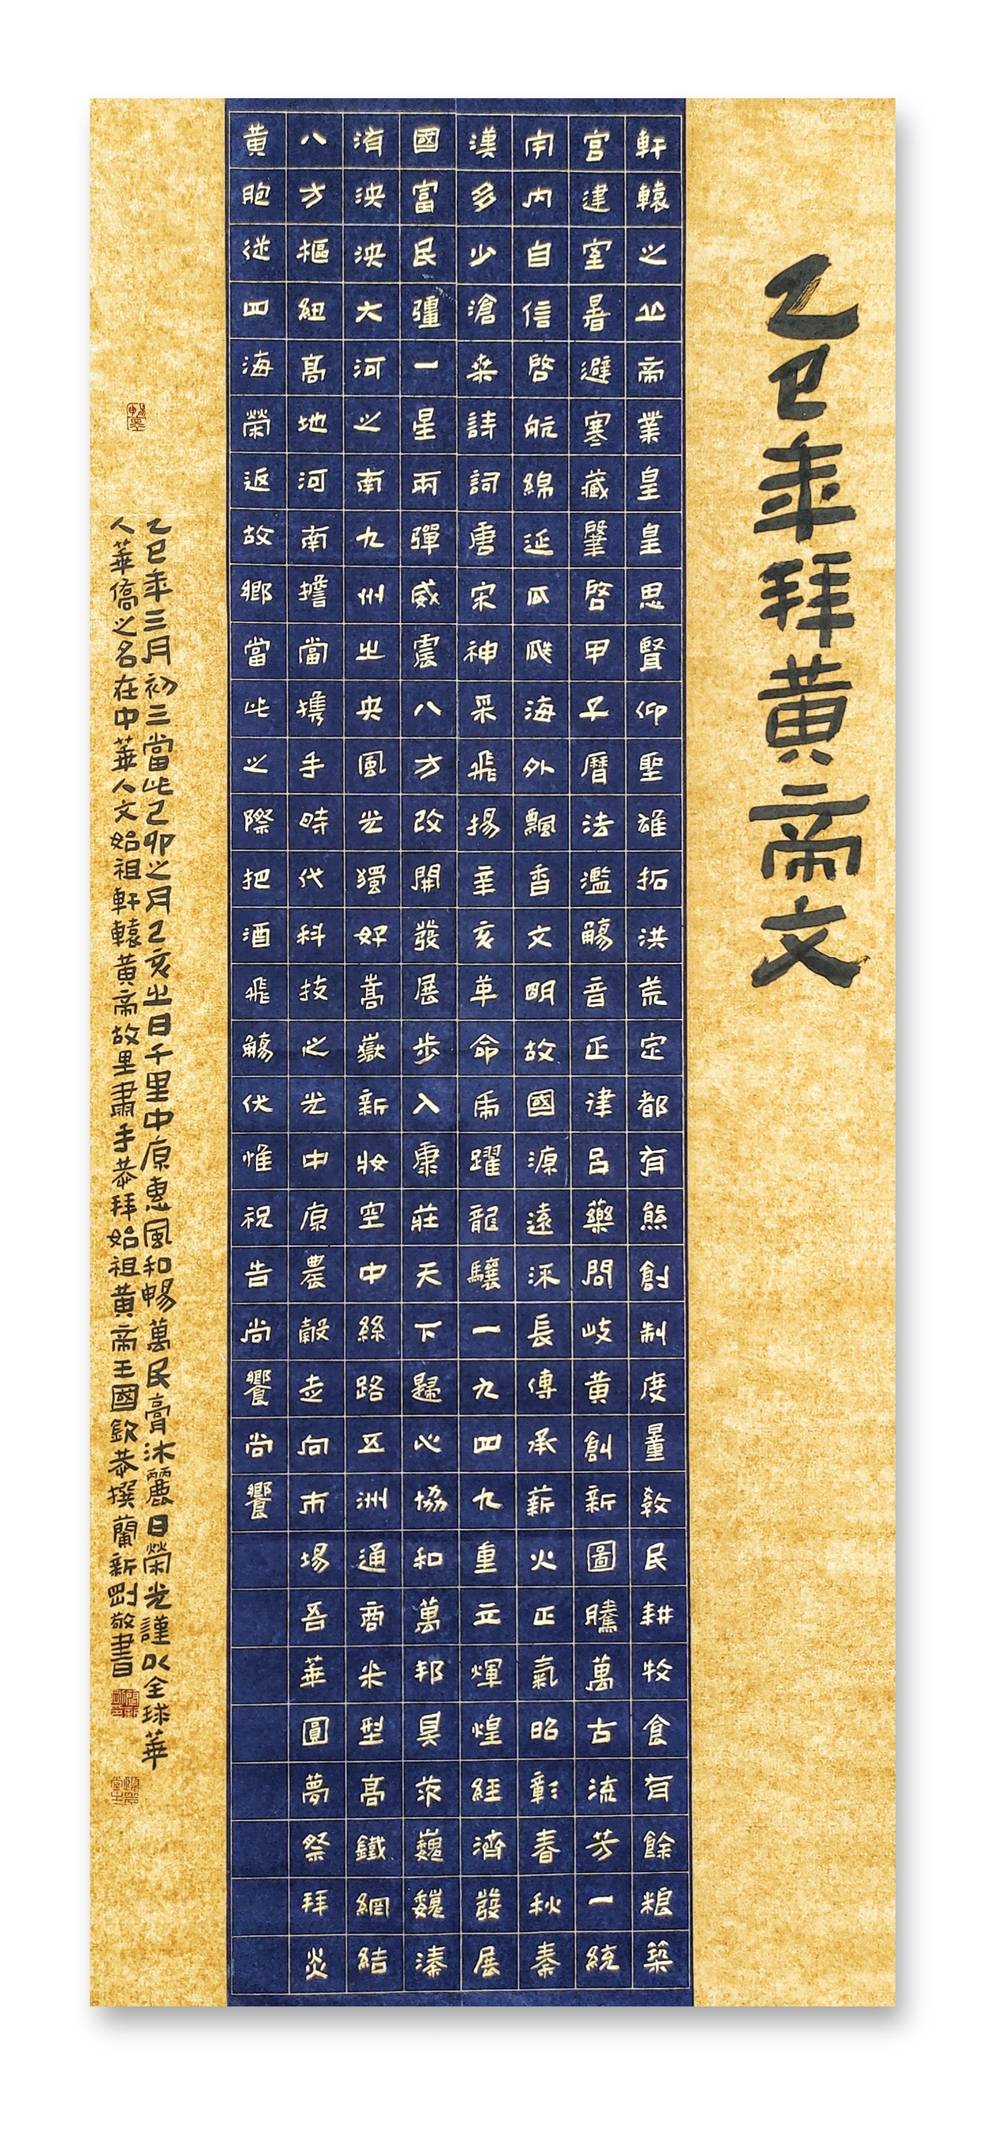 乙巳年拜黃帝文
軒轅之丘帝業皇皇思賢仰聖雄拓洪荒定都有熊創制度量教民耕牧食有餘糧築
宮建室暑避寒藏肇啓甲子曆法濫觴音正律呂藥問岐黃創新圖騰萬古流芳一統
宇內自信啓航綿延瓜瓞海外飄香文明故國源遠流長傳承薪火正氣昭彰春秋秦
漢多少滄桑詩詞唐宋神采飛揚辛亥革命虎躍龍驤一九四九重立輝煌經濟發展
國富民彊一星兩彈威震八方改開發展步入康莊天下歸心協和萬邦具茨巍巍溱
洧泱泱大河之南九州之央風光獨好嵩嶽新妝空中絲路五洲通商米型高鐵網結
八方樞紐髙地河南擔當攜手時代科技之光中原農穀走向市場吾華圓夢祭拜炎
黃胞從四海榮返故鄉當此之際把酒飛觴伏惟祝告尚饗尚饗
乙巳年三月初三當此己卯之月己亥之日千里中原惠風和暢萬民膏沐麗日榮光謹以全球華
人華僑之名在中華人文始祖軒轅黃帝故里肅手恭拜始祖黃帝王國欽恭撰蘭新剛敬書